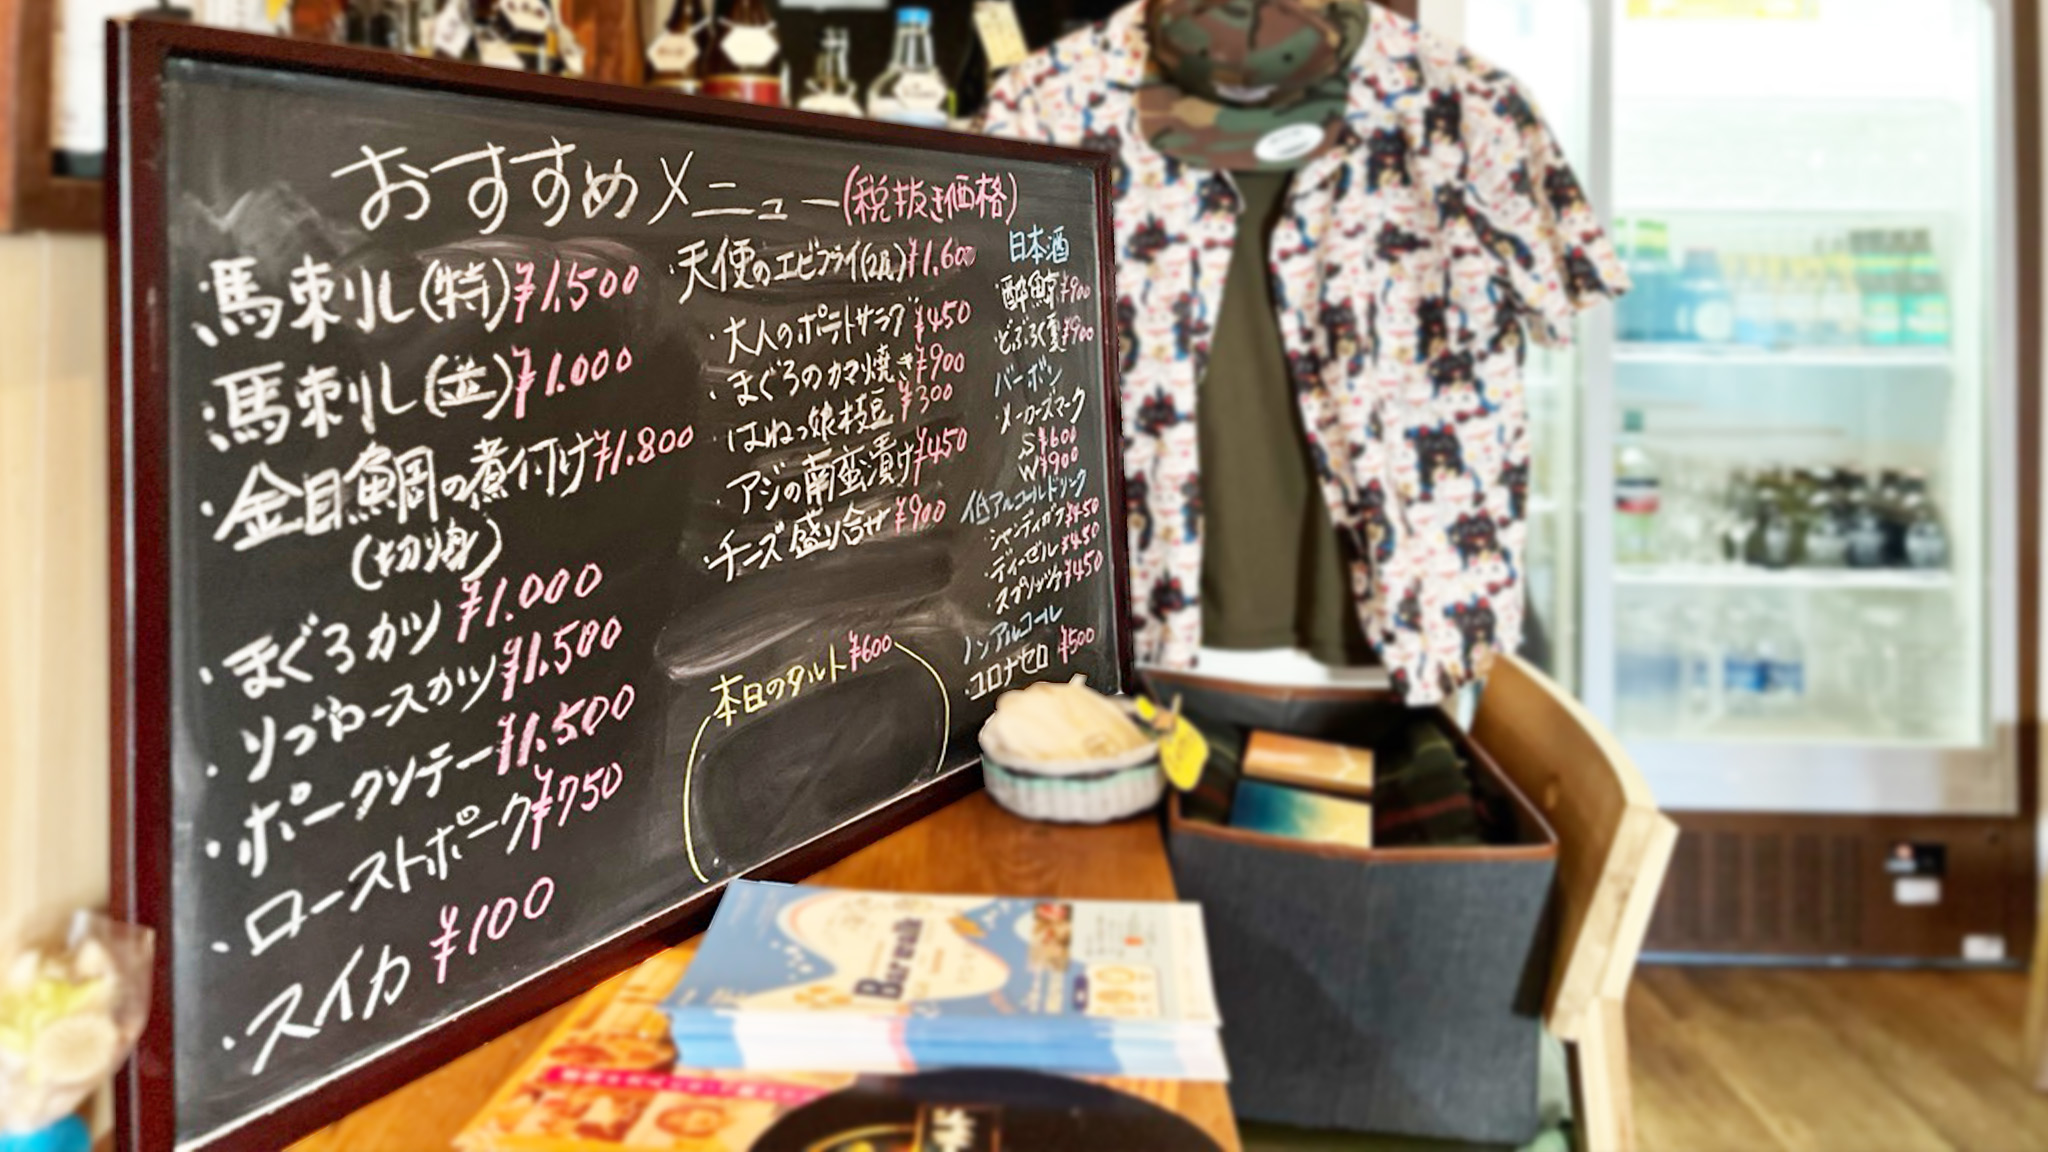 おすすめメニュー(税抜き価格)
・馬刺し(特)¥1.500
・馬刺し(並)¥1.000
・金目鯛の煮付け¥1.800
(切り身)
・まぐろカツ ¥1.000
・リブロースカツ¥1.500
・ポークソテー¥1.500
・ローストポーク¥750
・スイカ ¥100
・天使のエビフライ(2尾)¥1.600
・大人のポテトサラダ ¥450
・まぐろのカマ焼き¥900
・はねっ娘枝豆 ¥300
・アジの南蛮漬け¥450
・チーズ盛り合せ¥900
本日のタルト¥600
日本酒
・酔鯨¥900
・どぶろく ¥900
バーボン
・メーカーズマーク
S ¥600
W ¥900
低アルコールドリンク
・シャンディガフ¥450
・ディーゼル ¥450
・スプリッツァ¥450
ノンアルコール
・コロナゼロ ¥500
Barwalk